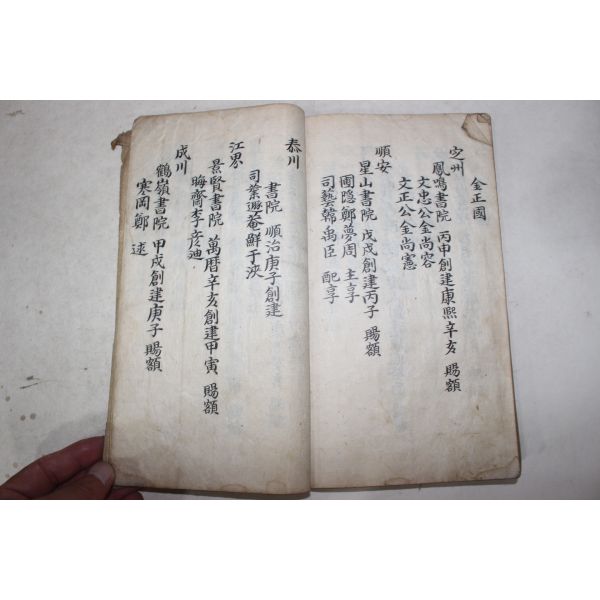 金正國
定州
鳳鳴書院 丙申創建康熙辛亥 賜額
文忠公金尚容
文正公金尚憲
順安
星山書院 戊戌創建丙子 賜額
圃隐鄭夢周 主享
司藝韓禹臣 配享
泰川
書院 順治庚子創建
司業遯菴鮮于浹
江界
景賢書院 萬曆辛亥創建甲寅 賜額
晦齋李彦迪
成川
鶴嶺書院 甲戌創建庚子 賜額
寒岡鄭逑